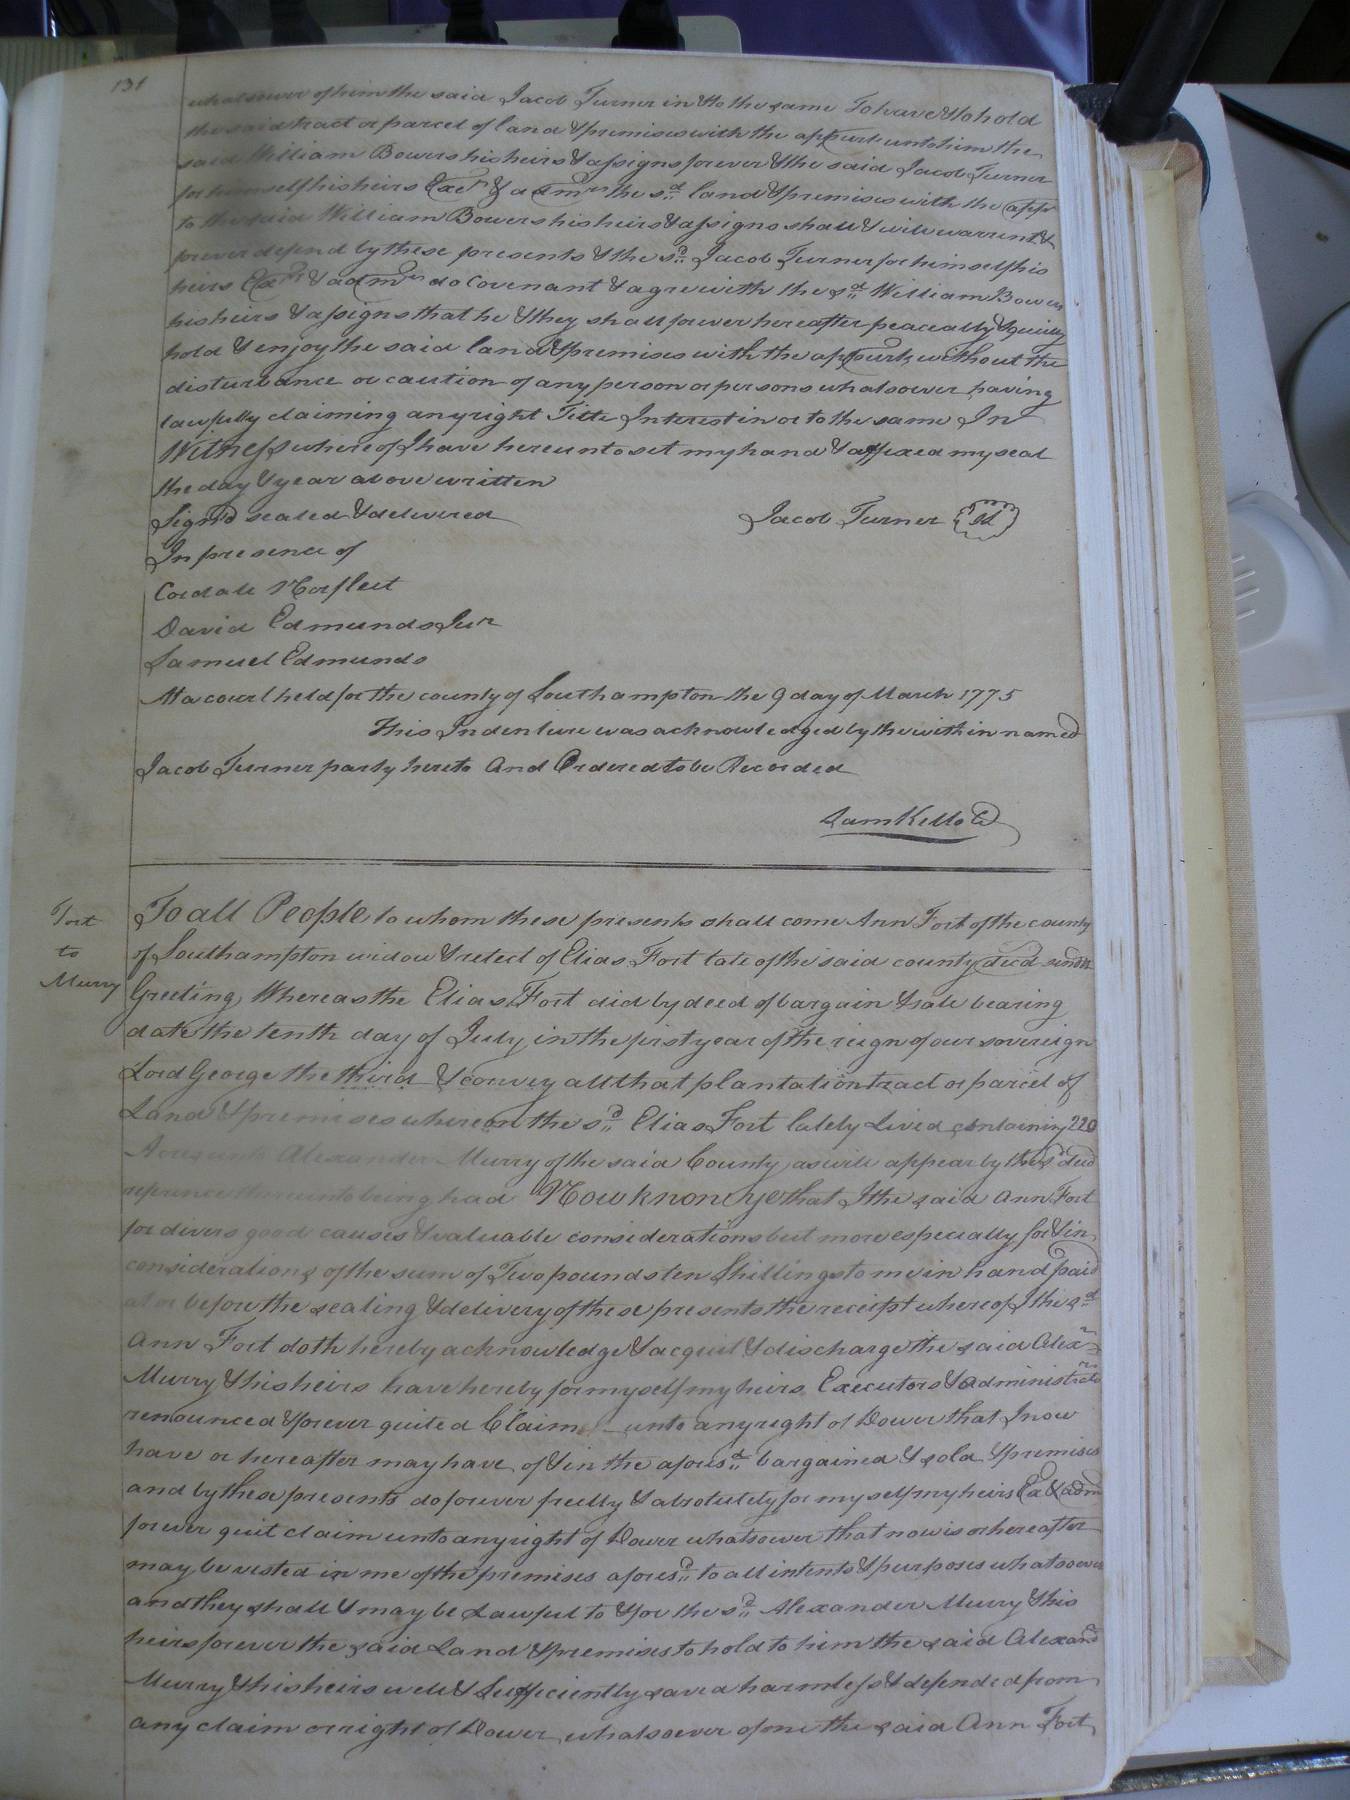 131
whatsoever of him the said Jacob Turner in & to the same To have & to hold
the said tract or parcel of land & premises with the appurts unto him the
said William Bowers his heirs & assigns forever & the said Jacob Turner
for himself his heirs Exrs & admrs the sd land & premises with the appr
to the said William Bowers his heirs & assigns shall & will warrent &
forever defend by these presents & the sd Jacob Turner for himself his
heirs Exrs & admrs do Covenant & agre with the sd William Bowers
his heirs & assigns that he & they shall forever hereafter peaceably & quietly
hold & enjoy the said land & premises with the appurts without the
disturbance or caution of any person or persons whatsoever having
lawfully claiming any right Title Interest in or to the same In
Witness where of I have hereunto set my hand & affixed my seal
the day & year above written
Signd sealed & delivered Jacob Turner
In presence of
Cordall Norfleet
David Edmunds Junr
Samuel Edmunds
At a court held for the county of Southampton the 9 day of March 1775
This Indenture was acknowledged by the within named
Jacob Turner party hereto And Ordered to be Recorded
Sam Kello C
Fort
to
Murry
To all People to whom these presents shall come Ann Fort of the county
of Southampton widow & relect of Elias Fort late of the said county decd
Greeting Whereas the Elias Fort did by deed of bargain & sale bearing
date the tenth day of July in the first year of the reign of our sovereign
Lord George the third & convey all that plantation tract or parcel of
Land & premises whereon the sd Elias Fort lately Lived containing 220
Acres unto Alexander Murry of the said County as will appear by the sd deed
referance thereunto being had Now know ye that I the said Ann Fort
for divers good causes & valuable considerations but more especially for & in
considerations of the sum of Two pounds ten Shillings to me in hand paid
at or before the sealing & delivery of these presents the receipt where of I the sd
Ann Fort doth hereby acknowledge & acquit & discharge the said Alexr
Murry & his heirs have hereby for my self my heirs Executors & administratrs
renounced & forever quited Claim unto any right of Dower that I now
have or hereafter may have of & in the aforesd bargained & sold & premises
and by these presents do forever freely & absolutely for my self my heirs Ex & adm
forever quit claim unto any right of Dower whatsoever that now is or hereafter
may be vested in me of the premises aforesd to all intents & purposes whatsoever
and they shall & may be Lawful to & for the sd Alexander Murry & his
heirs forever the said Land & premises to hold to him the said Alexand
Murry & his heirs well & Sufficiently saved harmless & defended from
any claim or right of Dower whatsoever of me the said Ann Fort